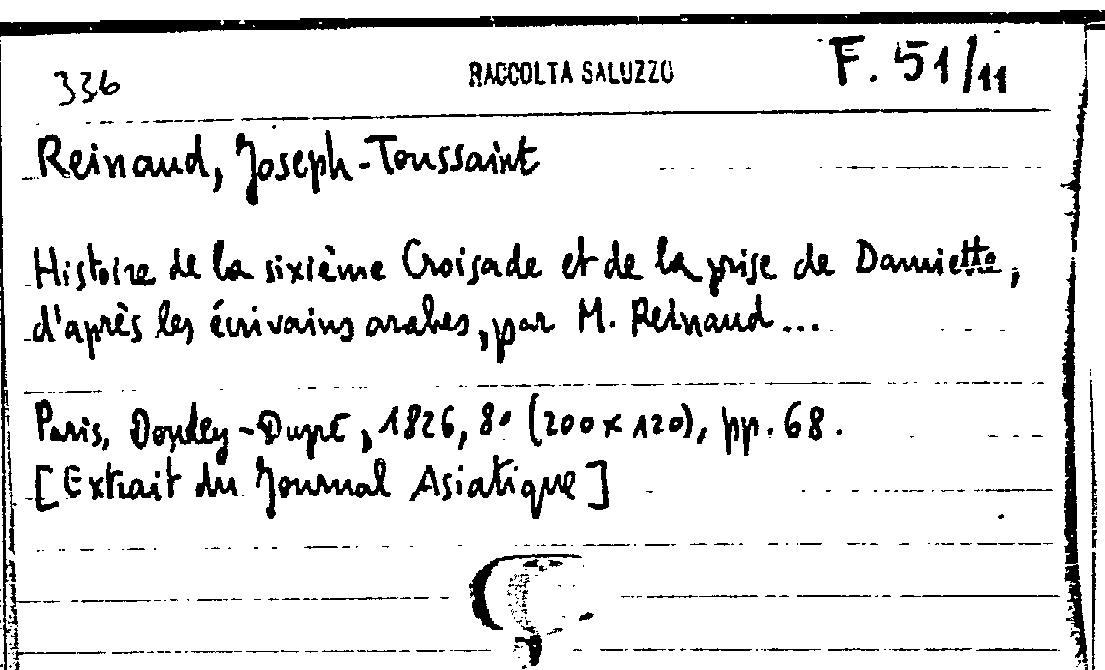 336 RACCOLTA SALUZZO F. 51/11
Reinaud, Joseph-Toussaint
Histoire de la sixième Croisade et de la prise de Damiette,
d'après les écrivains arabes, par M. Reinaud...
Paris, Dondey-Dupré, 1826, 8° (200 x 120), pp. 68.
[Extrait du Journal Asiatique]